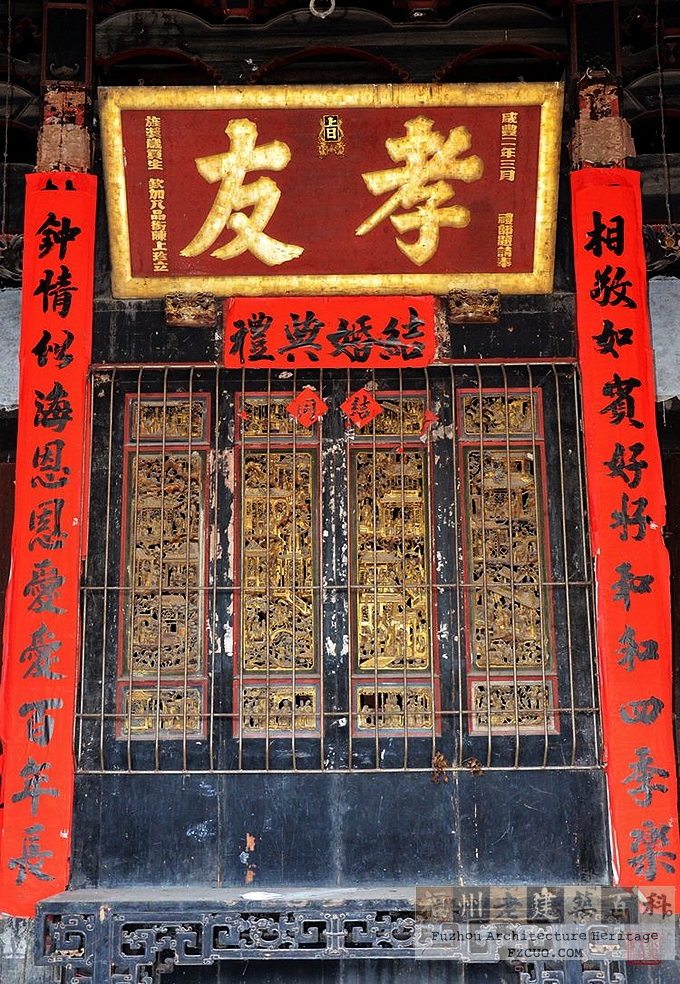 咸豐二年三月
禮師題請奉
上日
孝友
旌獎歲貢生
欽加八品銜陳上珍立
結婚典禮
結
同
相敬如賓好好和和四季樂
鍾情似海恩恩愛愛百年長
福州老建築百科
Fuzhou Architecture Heritage
FZCUO.COM